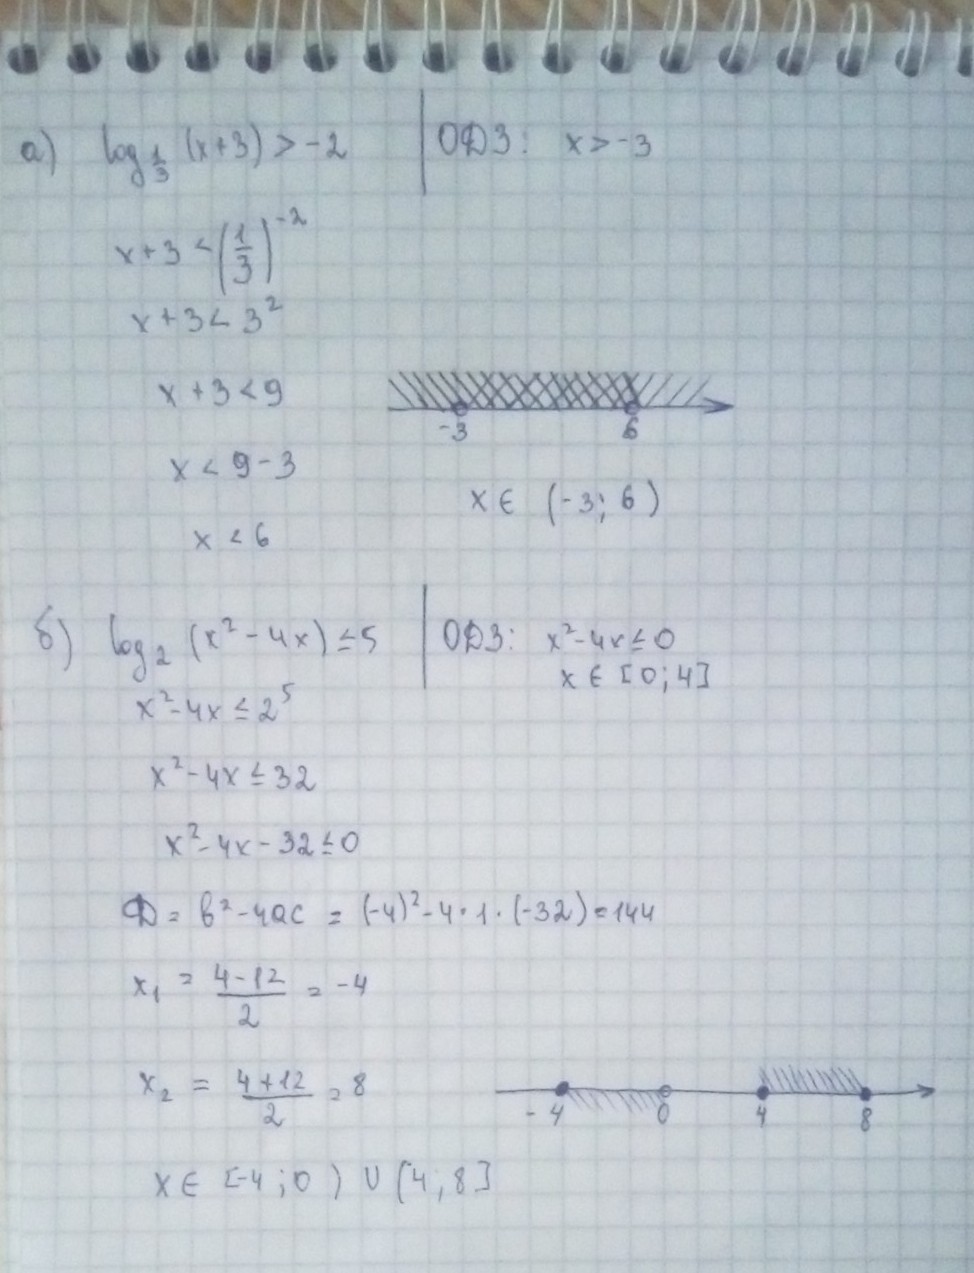 а) log_{1/3} (x+3) > -2 | ОДЗ: x > -3
x+3 < (1/3)^{-2}
x+3 < 3^2
x+3 < 9
-3 6
x < 9-3
x ∈ (-3; 6)
x < 6
б) log_2 (x^2-4x) ≤ 5 | ОДЗ: x^2-4x ≤ 0
x ∈ [0; 4]
x^2-4x ≤ 2^5
x^2-4x ≤ 32
x^2-4x-32 ≤ 0
D = b^2-4ac = (-4)^2-4·1·(-32) = 144
x_1 = (4-12)/2 = -4
x_2 = (4+12)/2 = 8
-4 0 4 8
x ∈ [-4; 0) ∪ (4; 8]